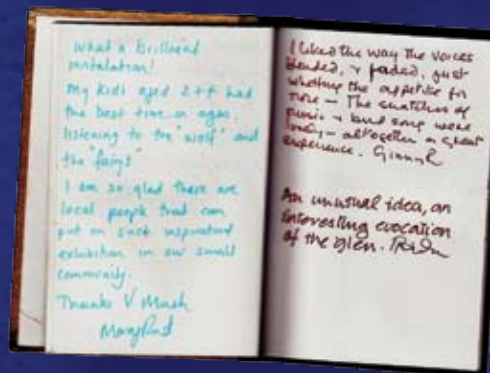 What a brilliant
installation!
My kids aged 2 + 4 had
the best time in ages,
listening to the "wolf" and
the "fairys"
I am so glad there are
local people that can
put on such inspirational
exhibition in our small
community.
Thanks V Much
I liked the way the voices
blended, + faded, just
whetting the appetite for
more - The snatches of
music + bird song were
lovely - altogether a great
experience.
An unusual idea, an
interesting evocation
of the glen.